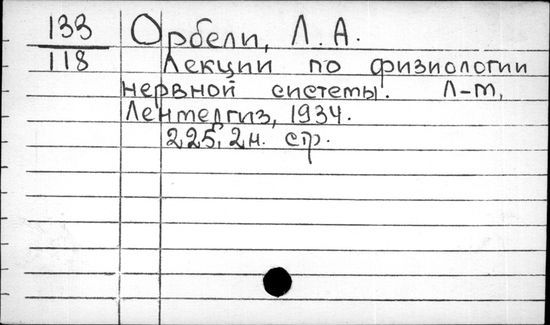 133 Орбели, Л. А.
118 Лекции по физиологии
нервной системы. Л-т,
Ленмедгиз, 1934.
225, 2н. стр.